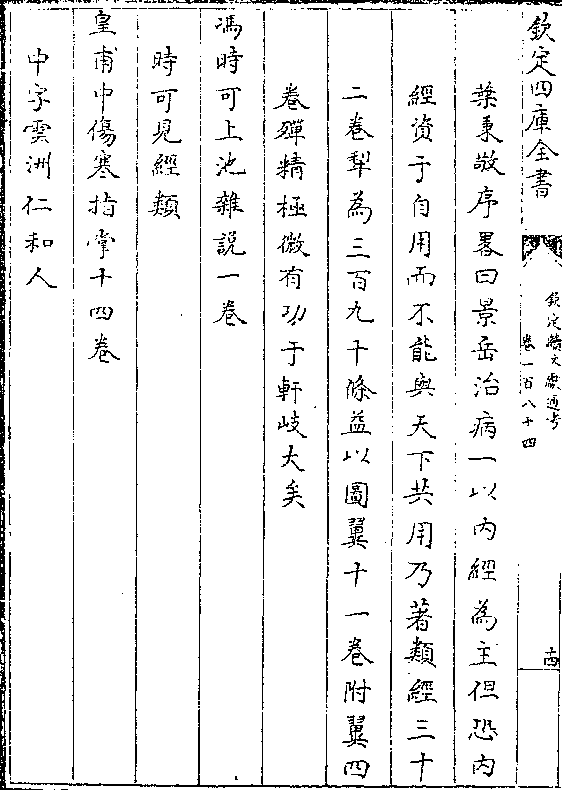 欽定四庫全書
欽定續文獻通考
卷一百八十四
十四
葉秉敬序畧曰景岳治病一以内經為主但恐内
經資于自用而不能與天下共用乃著類經三十
二卷犁為三百九十條益以圖翼十一卷附翼四
卷殫精極微有功于軒岐大矣
馮時可上池雜說一卷
時可見經類
皇甫中傷寒指掌十四卷
中字雲洲仁和人